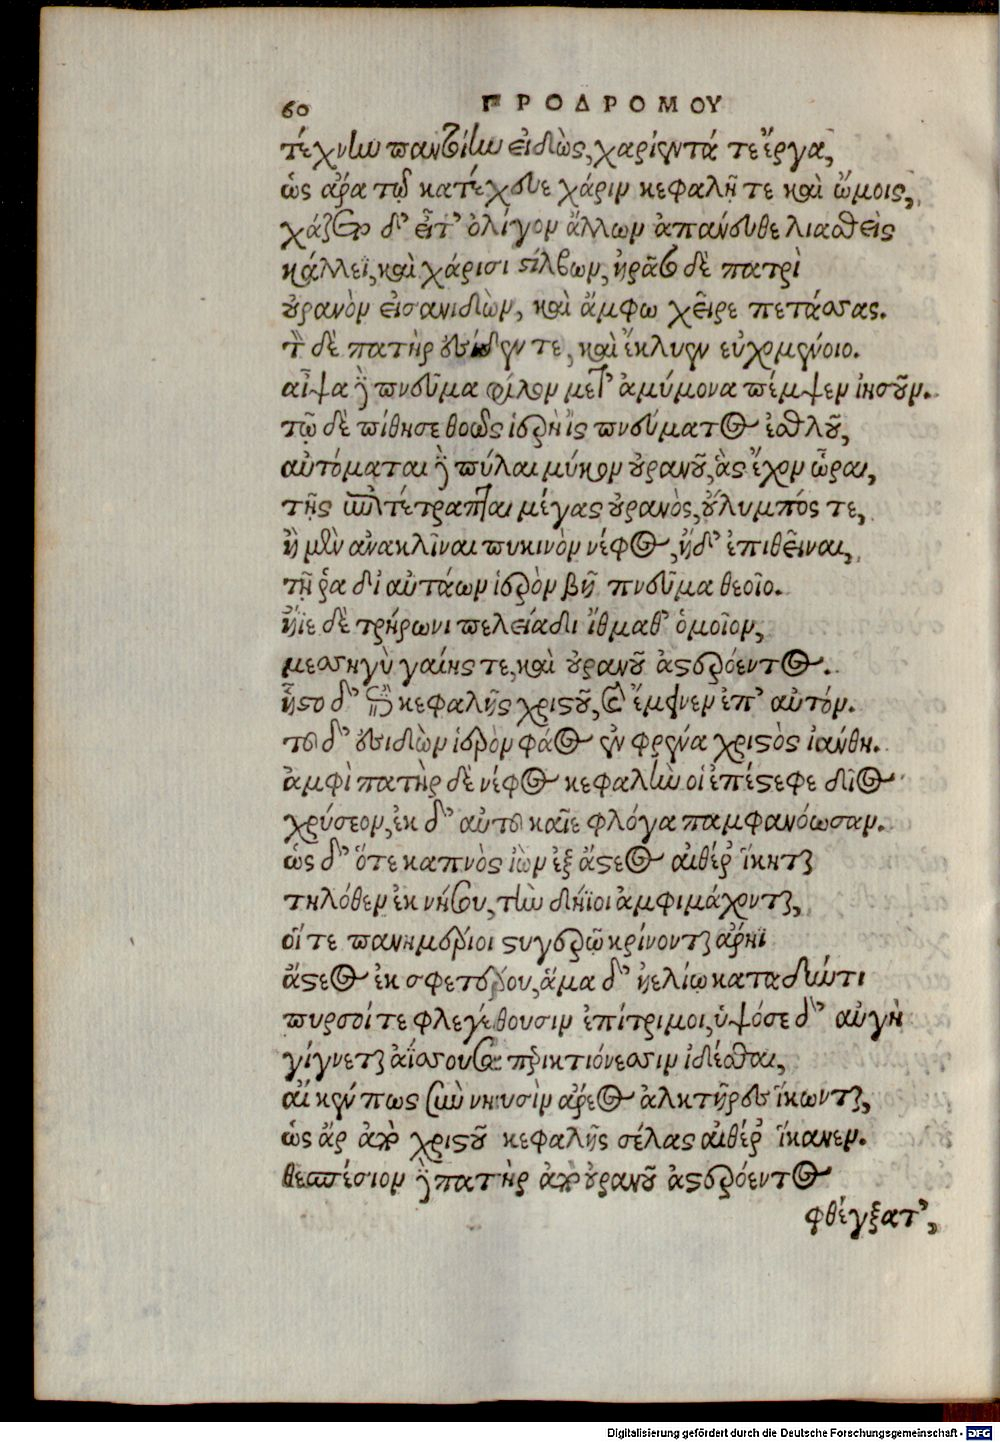 60 ΠΡΟΔΡΟΜΟΥ
τέχνην παντοίην εἰδὼς, χαρίεντά τε ἔργα,
ὡς ἄρα τῷ κατέχευε χάριν κεφαλῇ τε καὶ ὤμοις,
χάζετο δ' εἶτ' ὀλίγον ἄλλων ἀπάνευθε λιασθεὶς
κάλλεϊ, καὶ χάρισι στίλβων, ἠρᾶτο δὲ πατρὶ
οὐρανὸν εἰσανιδὼν, καὶ ἄμφω χεῖρε πετάσσας.
τοῦ δὲ πατὴρ εὐίδεν τε, καὶ ἔκλυεν εὐχομένοιο.
αἶψα δὲ πνεῦμα φίλον μετ' ἀμύμονα πέμψεν ἰησοῦν.
τῷ δὲ πίθησε θοῶς ἱερὴ ἲς πνεύματος ἐσθλοῦ,
αὐτόμαται δὲ πύλαι μύκον οὐρανοῦ, ἃς ἔχον ὧραι,
τῆς ἐπιτέτραπται μέγας οὐρανὸς, οὔλυμπός τε,
ἢ μὲν ἀνακλῖναι πυκινὸν νέφος, ἠδ' ἐπιθεῖναι,
τῇ ῥα δι αὐτάων ἱερὸν βῆ πνεῦμα θεοῖο.
ἤϊε δὲ τρήρωνι πελειάδι ἴθμαθ' ὁμοῖον,
μεσσηγὺ γαίης τε, καὶ οὐρανοῦ ἀστερόεντος.
ἧστο δ' ὑπὲρ κεφαλῆς χριστοῦ, καὶ ἔμεινεν ἐπ' αὐτόν.
τοῦ δ' εὐιδιὼν ἱερὸν φάος ἐν φρένα χριστὸς ἰάνθη.
ἀμφὶ πατὴρ δὲ νέφος κεφαλὴν οἱ ἐπέστεφε δῖος
χρύσεον, ἐκ δ' αὐτοῦ καῖε φλόγα παμφανόωσαν.
ὡς δ' ὅτε καπνὸς ἰὼν ἐξ ἄστεος αἰθέρ' ἵκηται
τηλόθεν ἐκ νήσου, τὴν δήϊοι ἀμφιμάχονται,
οἵ τε πανημέριοι στυγερῷ κρίνονται ἄρηϊ
ἄστεος ἐκ σφετέρου, ἅμα δ' ἠελίῳ καταδιώτι
πυρσοί τε φλεγέθουσιν ἐπίτριμοι, ὑψόσε δ' αὐγὴ
γίγνεται ἀΐσσουσα περικτιόνεσσιν ἰδέσθαι,
αἴ κέν πως σὺν νηυσὶν ἄρεος ἀλκτῆρες ἵκωνται,
ὡς ἄρ ἀπὸ χριστοῦ κεφαλῆς σέλας αἰθέρ' ἵκανεν.
θεσπέσιον δὲ πατὴρ ἀπὸ οὐρανοῦ ἀστερόεντος
φθέγξατ',
Digitalisierung gefördert durch die Deutsche Forschungsgemeinschaft - DFG